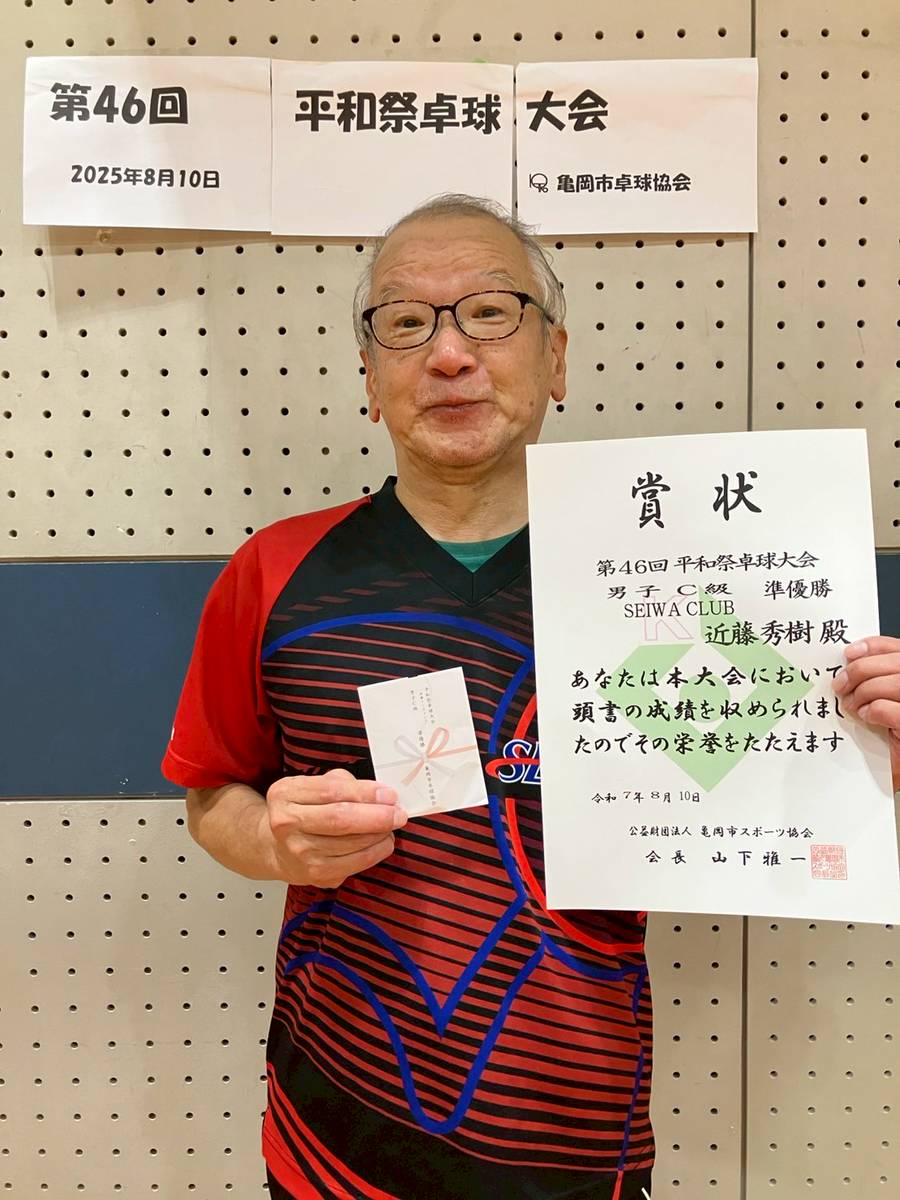 第46回 平和祭卓球 大会
2025年8月10日
亀岡市卓球協会
賞状
第46回 平和祭卓球大会
男子 C級 準優勝
SEIWA CLUB
近藤秀樹 殿
あなたは本大会において
頭書の成績を収められまし
たのでその栄誉をたたえます
令和 7年 8月 10日
公益財団法人 亀岡市スポーツ協会
会長 山下雅一
平和祭卓球大会
男子C級
準優勝
亀岡市卓球協会